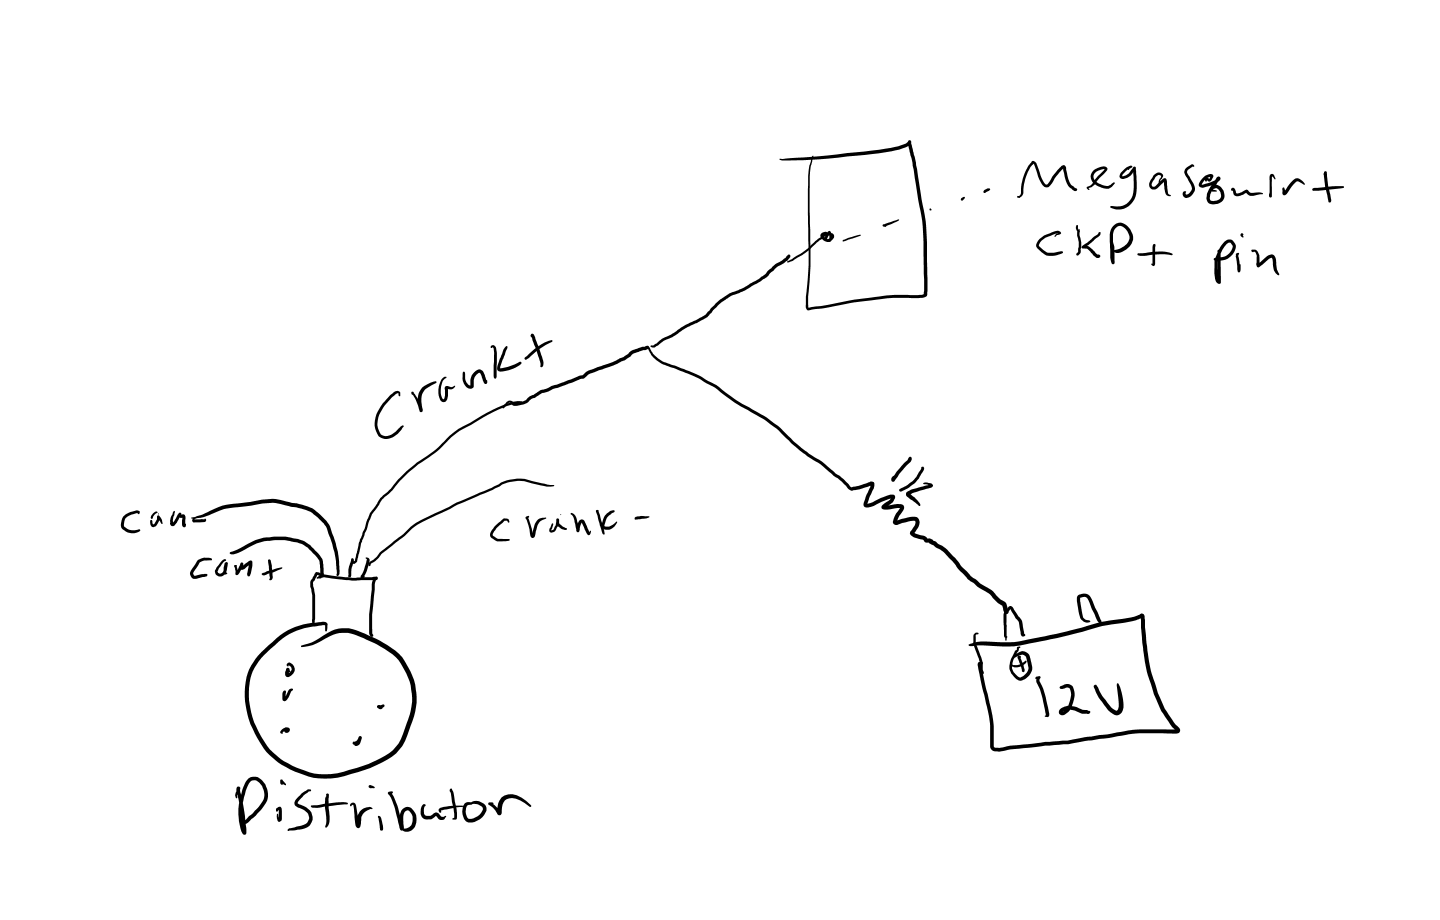 Megasquirt
CKP+ pin
Crank+
cam-
cam+
crank -
1k
+
12V
Distributor